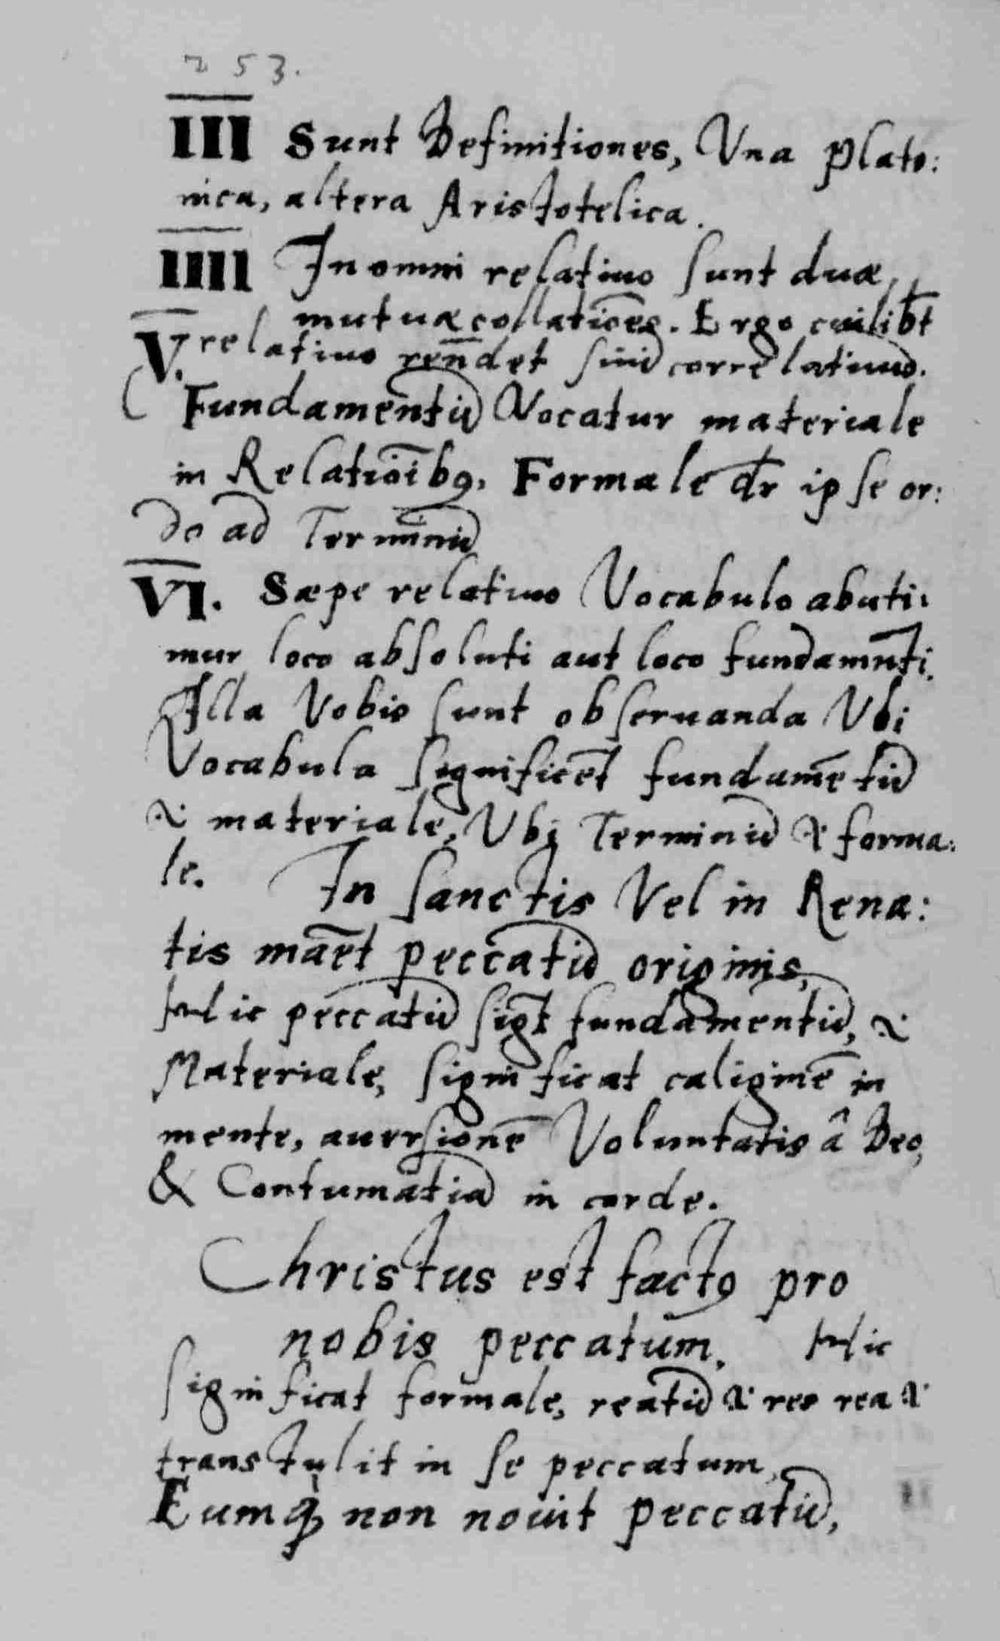 253.
III Sunt Definitiones, Vna Plato:
nica, altera Aristotelica.
IIII In omni relatiuo sunt duæ
mutuæ collatiões. Ergo cuilibt
V. relatiuo rendet suũ correlatiuũ.
Fundamentũ Vocatur materiale
in Relatioĩbꝰ, Formale dr ipse or:
do ad Terminũ
VI. Sæpe relatiuo Vocabulo abuti:
mur loco absoluti aut loco fundamnti.
Illa Vobis sunt obseruanda Vbi
Vocabula significẽt fundamẽtũ
& materiale, Vbi Terminũ & forma:
le. In sanctis Vel in Rena:
tis maẽt peccatũ originis,
Hic peccatũ sigt fundamentũ, &
Materiale, significat caliginẽ in
mente, auersionẽ Voluntatis â Deo,
& Contumatiã in corde.
Christus est factꝰ pro
nobis peccatum. Hic
significat formale, reatũ & res rea &
transtulit in se peccatum,
Eumqꝫ non nouit peccatũ,